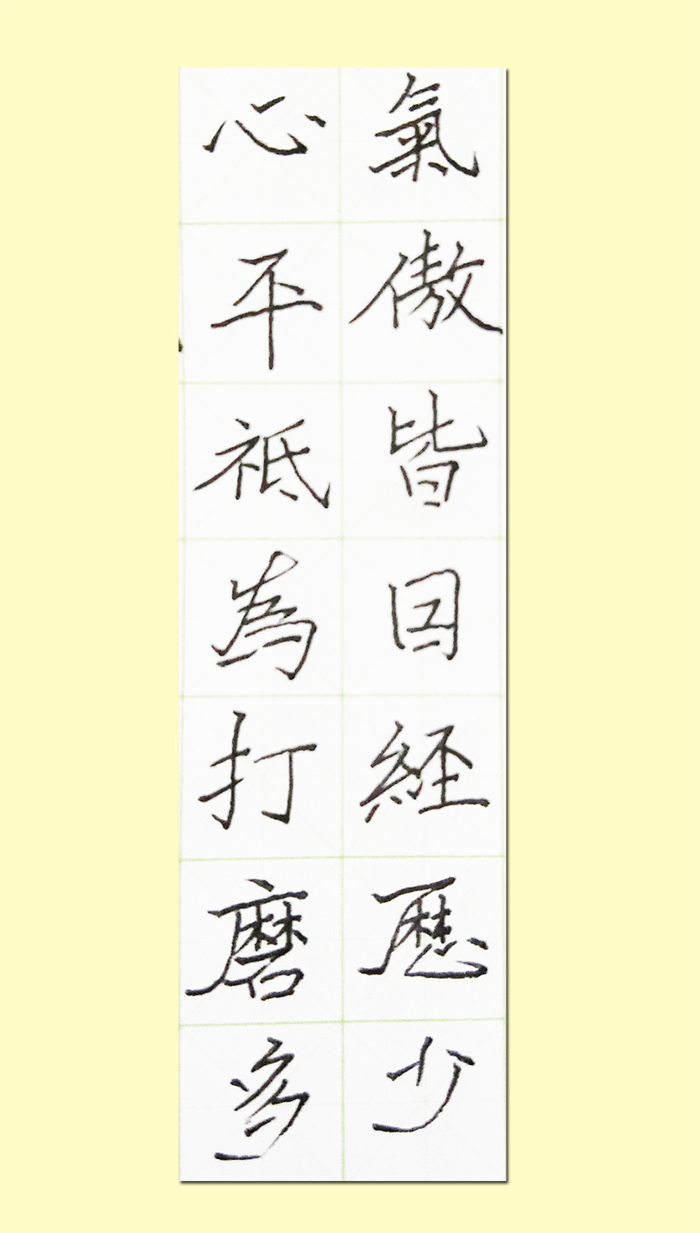 氣傲皆囙經歷少
心平祗為打磨多